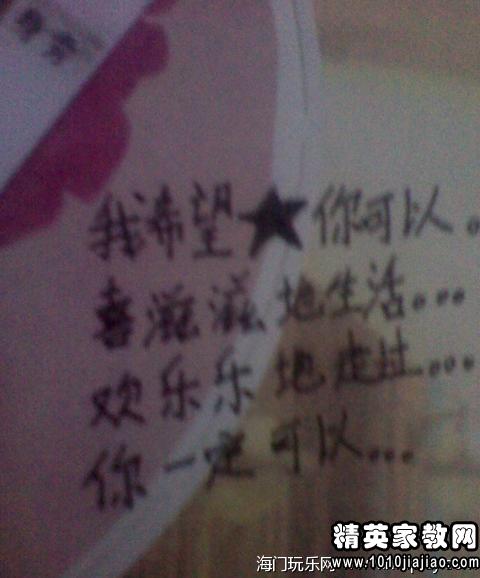 我希望★你可以。
喜滋滋地生活...
欢乐乐地走过...
你一定可以...
精英家教网
海门玩乐网
www.1010jiajiao.com